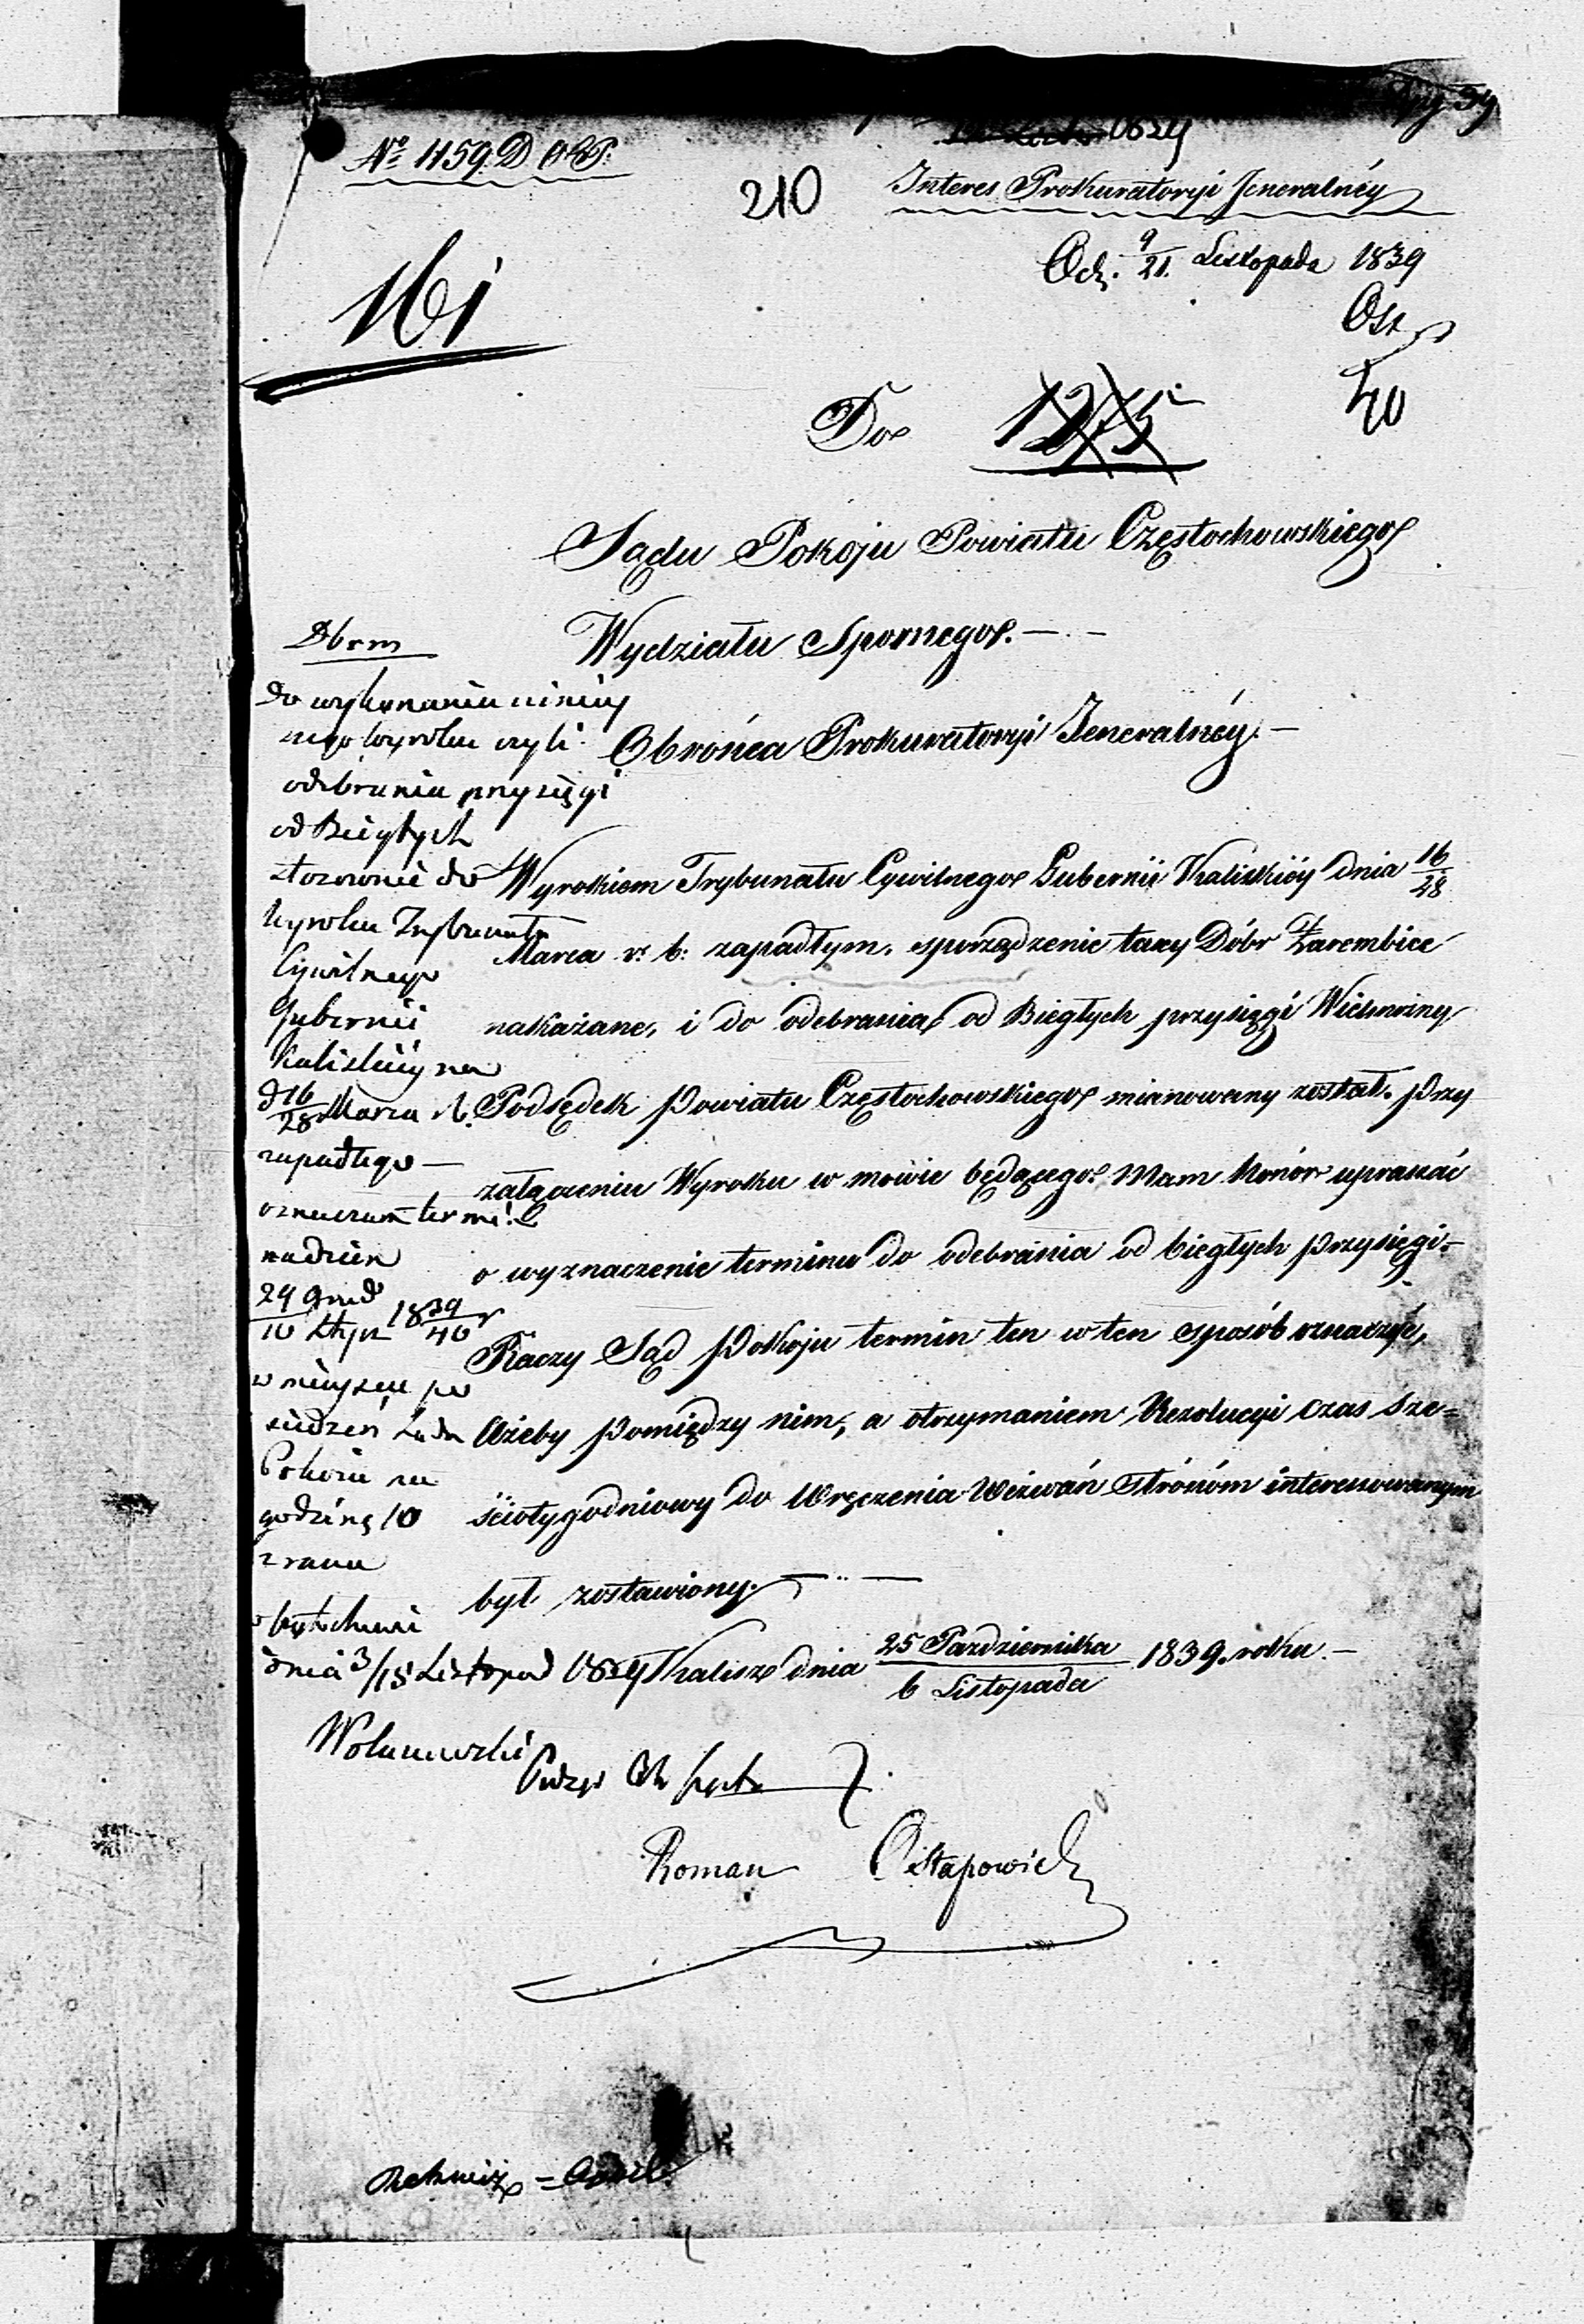 № 1159. D O.P.
210
Interes Prokuratoryi Jeneralnéy
Od. 9/21. Listopada 1839
161
40
Do
1275
Sądu Pokoju Powiatu Częstochowskiego
Wydziału Spornego. — . —
Obrońca Prokuratoryi Jeneralnéy. —
Wyrokiem Trybunału Cywilnego Gubernii Kaliskiéy dnia 16/28
Marca r. b. zapadłym, sporządzenie taxy Dóbr Zarembice
nakazane, i do odebrania od Biegłych przysięgi Wielmożny
Podsędek Powiatu Częstochowskiego mianowany został. Przy
załączeniu Wyroku w mowie będącego Mam honór upraszać
o wyznaczenie terminu do odebrania od biegłych przysięgi. —
Raczy Sąd Pokoju termin ten w ten sposób oznaczyć,
Ażeby pomiędzy nim, a otrzymaniem Rezolucyi czas sze=
ściotygodniowy do Wręczenia Wezwań Strónóm interessowanym
był zostawiony. — .. —
Kalisz dnia 25 Pazdziernika / 6 Listopada 1839. roku. —
Roman Ostapowicz
do wykonania niniey
szego Wyroku czyli
odebrania przysięgi
od Biegłych
stosownie do
Wyroku Trybunału
Cywilnego
Gubernii
Kaliskiéy na
d 16/28 Marca r.
zapadłego —
oznaczam termi
na dzien
29 Grud / 10 Stycz 1839/40 r
w mieyscu po
siedzeń Sądu
Pokoiu na
godzinę 10
z rana
dnia 3/15 Listopad 1839